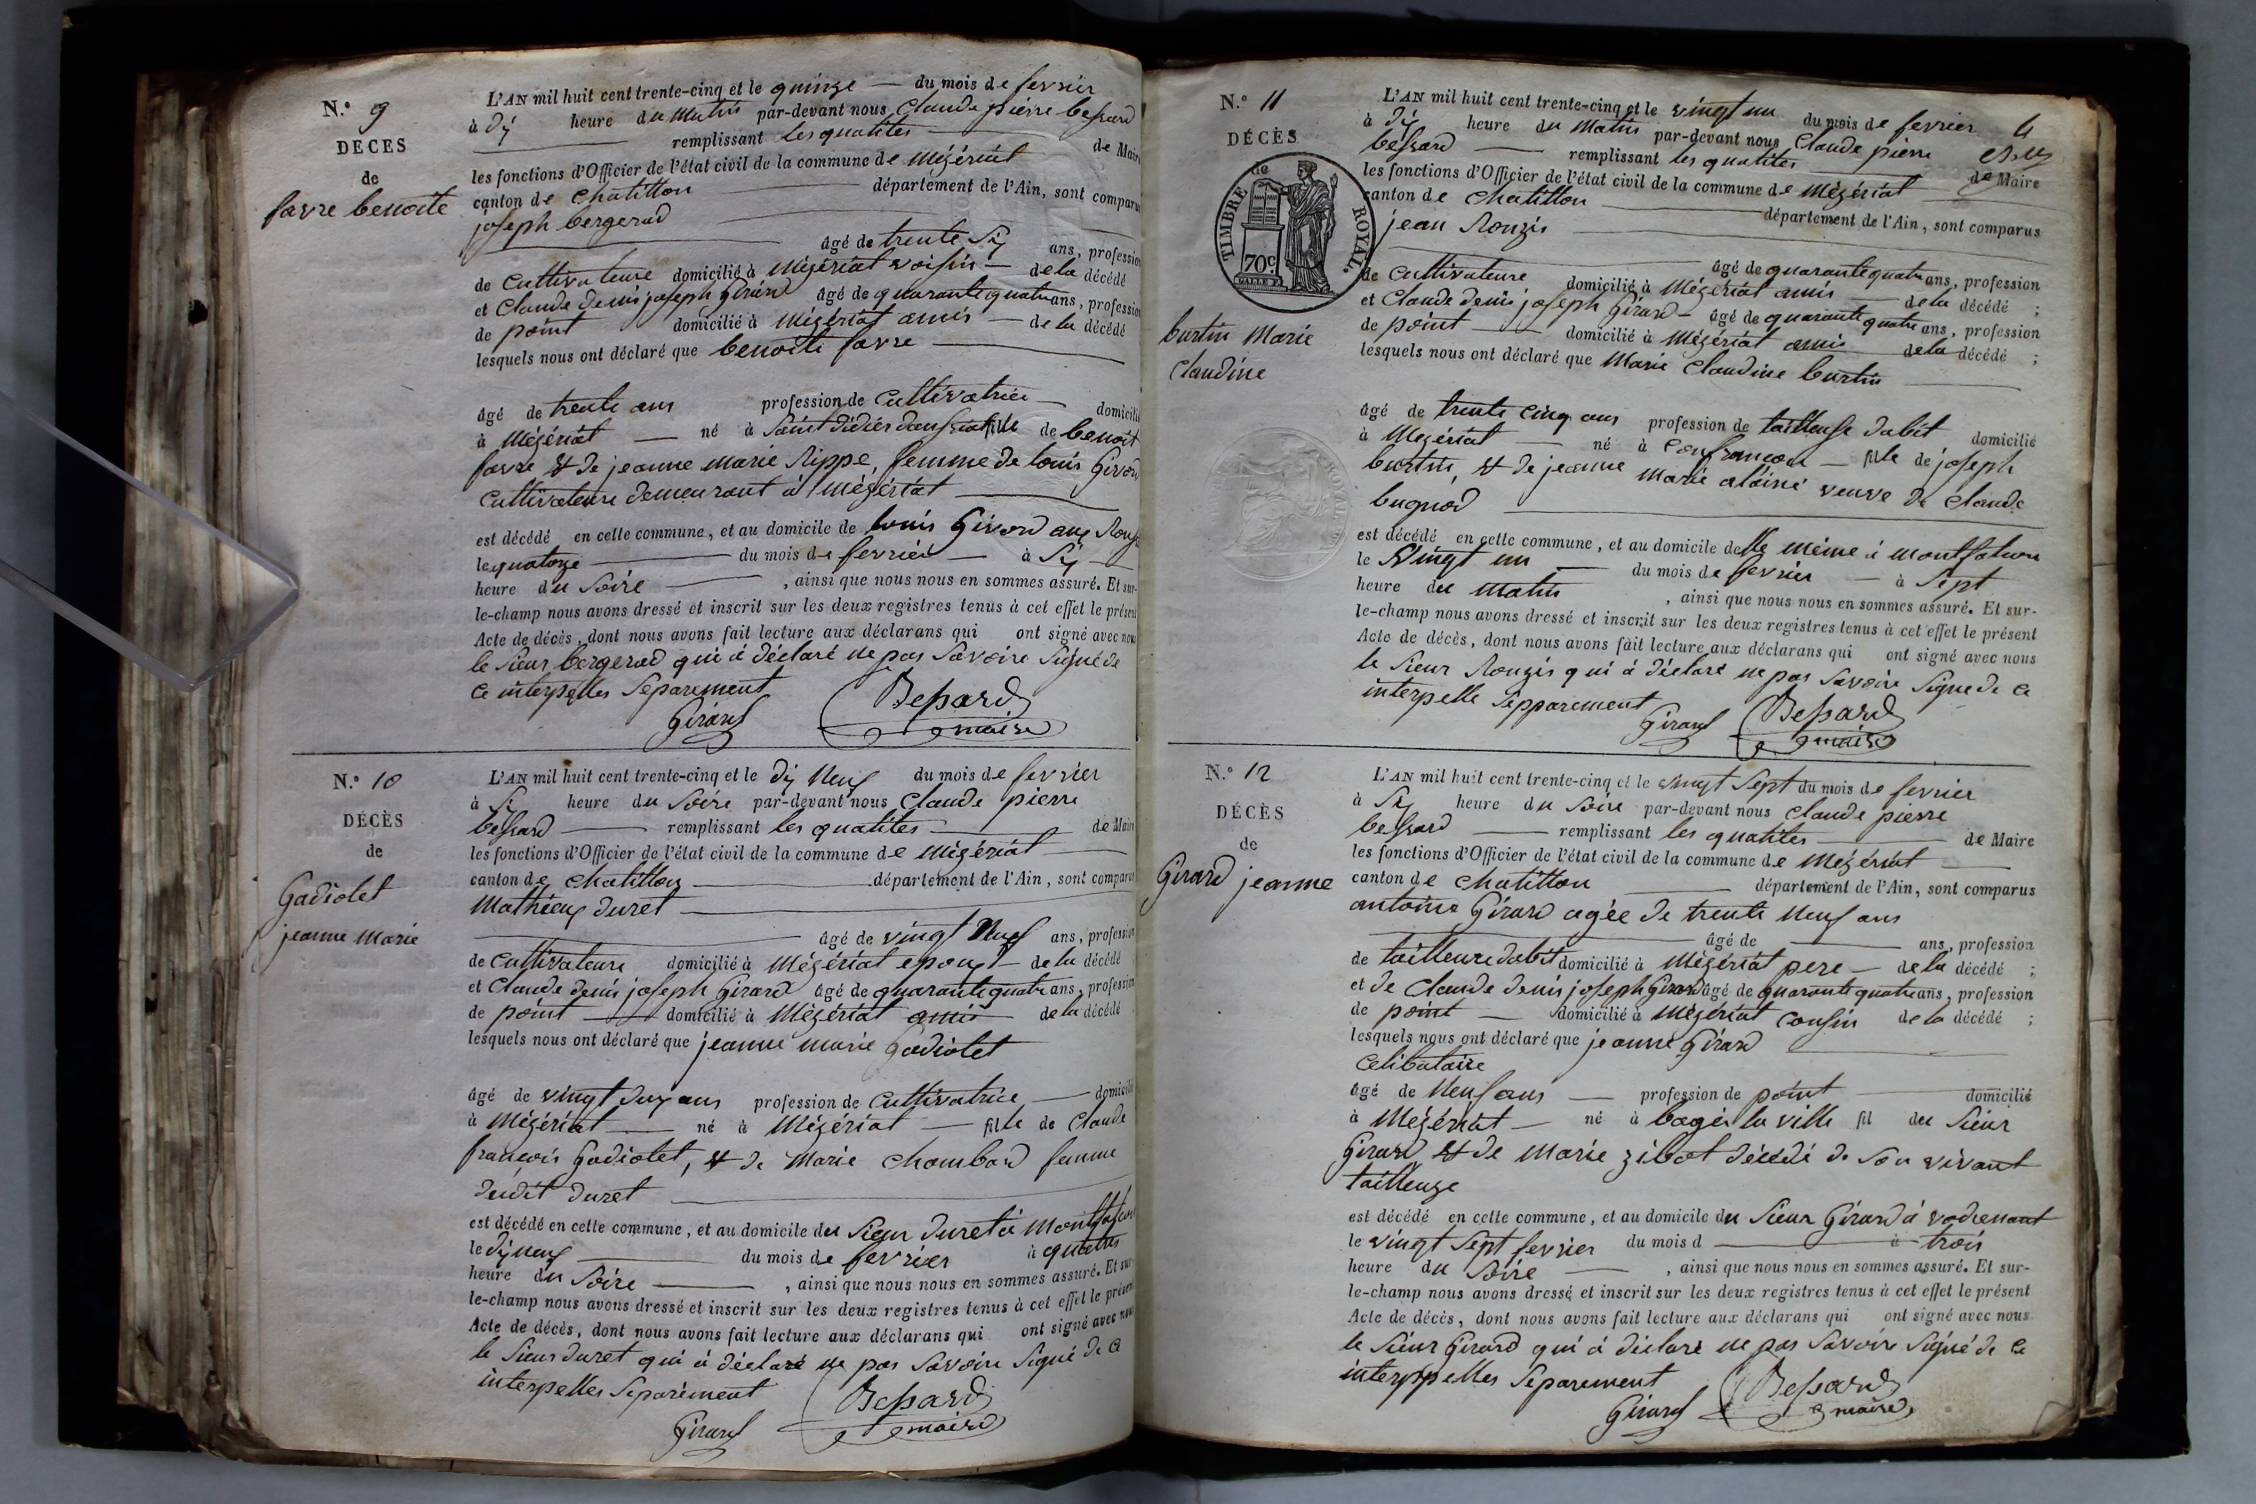 N.° 9
DÉCÈS
de
favre benoite
L'AN mil huit cent trente-cinq et le quinze du mois de fevrier
à dix heure du Matin par-devant nous Claude pierre bessard
remplissant les qualités de Maire
les fonctions d'Officier de l'état civil de la commune de Mézériat
canton de Chatillon département de l'Ain, sont comparus
joseph bergerad
âgé de trente Six ans, profession
de Cultivateure domicilié à Mézériat voisin de la décédé
et Claude denis joseph Girard âgé de quarante quatre ans, profession
de point domicilié à Mézériat amis de la décédé
lesquels nous ont déclaré que benoite favre
âgé de trente ans profession de Cultivatrice domicilié
à Mézériat né à Saint didier daussiat fille de benoit
favre & de jeanne marie Rippe, femme de louis Givord
Cultivateure demeurant à Mézériat
est décédé en cette commune, et au domicile de louis Givord aux
le quatorze du mois de fevrier à Six
heure du Soire , ainsi que nous nous en sommes assuré. Et sur-
le-champ nous avons dressé et inscrit sur les deux registres tenus à cet effet le présent
Acte de décès, dont nous avons fait lecture aux déclarans qui ont signé avec nous
le Sieur bergerad qui à déclaré ne pas Savoire Signé de
Ce interpelles Séparement
Girard Bessard
maire
N.° 10
DÉCÈS
de
Gadiolet
jeanne marie
L'AN mil huit cent trente-cinq et le dix Neuf du mois de fevrier
à Six heure du Soire par-devant nous Claude pierre
bessard remplissant les qualités de Maire
les fonctions d'Officier de l'état civil de la commune de Mézériat
canton de Chatillon département de l'Ain, sont comparus
Mathieux duret
âgé de vingt Neuf ans, profession
de Cultivateure domicilié à Mézériat epoux de la décédé
et Claude denis joseph Girard âgé de quarante quatre ans, profession
de point domicilié à Mézériat amis de la décédé
lesquels nous ont déclaré que jeanne marie Gadiolet
âgé de vingt dux ans profession de Cultivatrice domicilié
à Mézériat né à Mézériat fille de Claude
francois Gadiolet, & de Marie Chambard femme
dudit duret
est décédé en cette commune, et au domicile du Sieur duret à Montfalcon
le dix neuf du mois de fevrier à quatres
heure du Soire , ainsi que nous nous en sommes assuré. Et sur-
le-champ nous avons dressé et inscrit sur les deux registres tenus à cet effet le présent
Acte de décès, dont nous avons fait lecture aux déclarans qui ont signé avec nous
le Sieur duret qui à déclaré ne pas Savoire Signé de Ce
interpelles Séparément
Girard Bessard
maire
N.° 11
DÉCÈS
de
TIMBRE ROYAL.
70c.
burtin Marie
Claudine
4
L'AN mil huit cent trente-cinq et le vingt un du mois de fevrier
à dix heure du Matin par-devant nous Claude pierre
bessard remplissant les qualités de Maire
les fonctions d'Officier de l'état civil de la commune de Mézériat
canton de Chatillon département de l'Ain, sont comparus
jean Rouzis
âgé de quarante quatre ans, profession
de Cultivateure domicilié à Mézériat amis de la décédé ;
et Claude denis joseph Girard âgé de quarante quatre ans, profession
de point domicilié à Mézériat amis de la décédé ;
lesquels nous ont déclaré que Marie Claudine burtin
âgé de trente cinq ans profession de tailleuse dabit domicilié
à Mézériat né à Confrancon fille de joseph
burtin, & de jeanne Marie alainé veuve de Claude
bugnod
est décédé en cette commune, et au domicile delle même à Montfalcon
le Vingt un du mois de fevrier à Sept
heure du matin , ainsi que nous nous en sommes assuré. Et sur-
le-champ nous avons dressé et inscrit sur les deux registres tenus à cet effet le présent
Acte de décès, dont nous avons fait lecture aux déclarans qui ont signé avec nous
le Sieur Rouzis qui à déclaré ne pas Savoire Signe de Ce
interpelle Sepparement
Girard Bessard
maire
N.° 12
DÉCÈS
de
Girard jeanne
L'AN mil huit cent trente-cinq et le vingt Sept du mois de fevrier
à Six heure du Soire par-devant nous Claude pierre
bessard remplissant les qualités de Maire
les fonctions d'Officier de l'état civil de la commune de Mézériat
canton de Chatillon département de l'Ain, sont comparus
antoine Girard agée de trente Neuf ans
âgé de ans, profession
de tailleure dabit domicilié à Mézériat pere de la décédé ;
et de Claude denis joseph Girard âgé de quarante quatre ans, profession
de point domicilié à Mézériat Cousin de la décédé ;
lesquels nous ont déclaré que jeanne Girard
Célibataire
âgé de Neuf ans profession de point domicilié
à Mézériat né à bagé la ville fil du Sieur
Girard & de Marie zibot décédé de Son vivant
tailleuze
est décédé en cette commune, et au domicile du Sieur Girard à vadienant
le vingt Sept fevrier du mois d à trois
heure du Soire , ainsi que nous nous en sommes assuré. Et sur-
le-champ nous avons dressé et inscrit sur les deux registres tenus à cet effet le présent
Acte de décès, dont nous avons fait lecture aux déclarans qui ont signé avec nous
le Sieur Girard qui à déclaré ne pas Savoir Signé de Ce
interppelles Séparement
Girard Bessard
maire